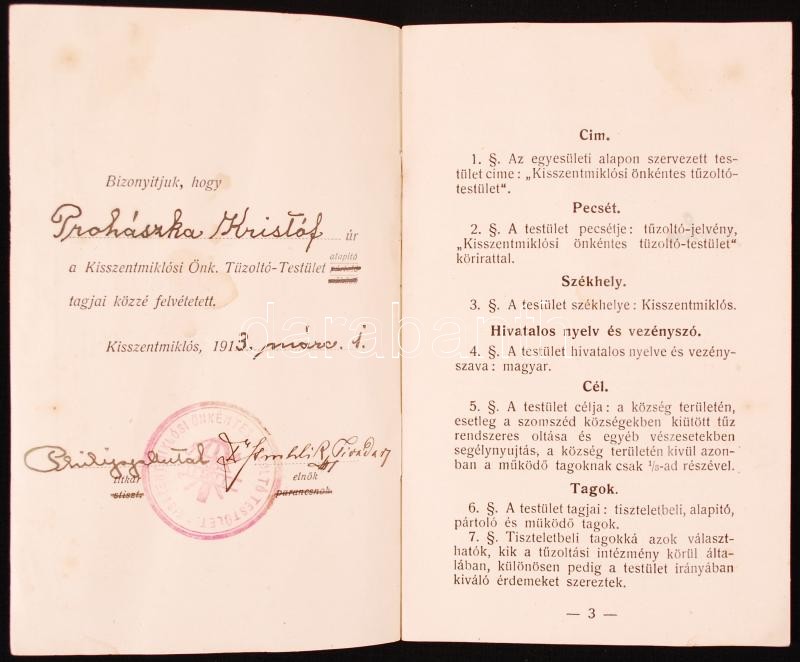 Bizonyitjuk, hogy
Prohászka Kristóf úr
alapító
a Kisszentmiklósi Önk. Tüzoltó-Testület pártoló
tagjai közzé felvétetett.
Kisszentmiklós, 1913. márc. 1.
titkár
sliszt.
elnök
parancsnok
Cim.
1. §. Az egyesületi alapon szervezett tes-
tület cime: „Kisszentmiklósi önkéntes tűzoltó-
testület“.
Pecsét.
2. §. A testület pecsétje: tűzoltó-jelvény,
„Kisszentmiklósi önkéntes tűzoltó-testület“
körirattal.
Székhely.
3. §. A testület székhelye: Kisszentmiklós.
Hivatalos nyelv és vezényszó.
4. §. A testület hivatalos nyelve és vezény-
szava: magyar.
Cél.
5. §. A testület célja: a község területén,
esetleg a szomszéd községekben kiütött tűz
rendszeres oltása és egyéb vészesetekben
segélynyujtás, a község területén kivül azon-
ban a müködő tagoknak csak ⅓-ad részével.
Tagok.
6. §. A testület tagjai: tiszteletbeli, alapitó,
pártoló és müködő tagok.
7. §. Tiszteletbeli tagokká azok választ-
hatók, kik a tűzoltási intézmény körül álta-
lában, különösen pedig a testület irányában
kiváló érdemeket szereztek.
— 3 —
darabanth